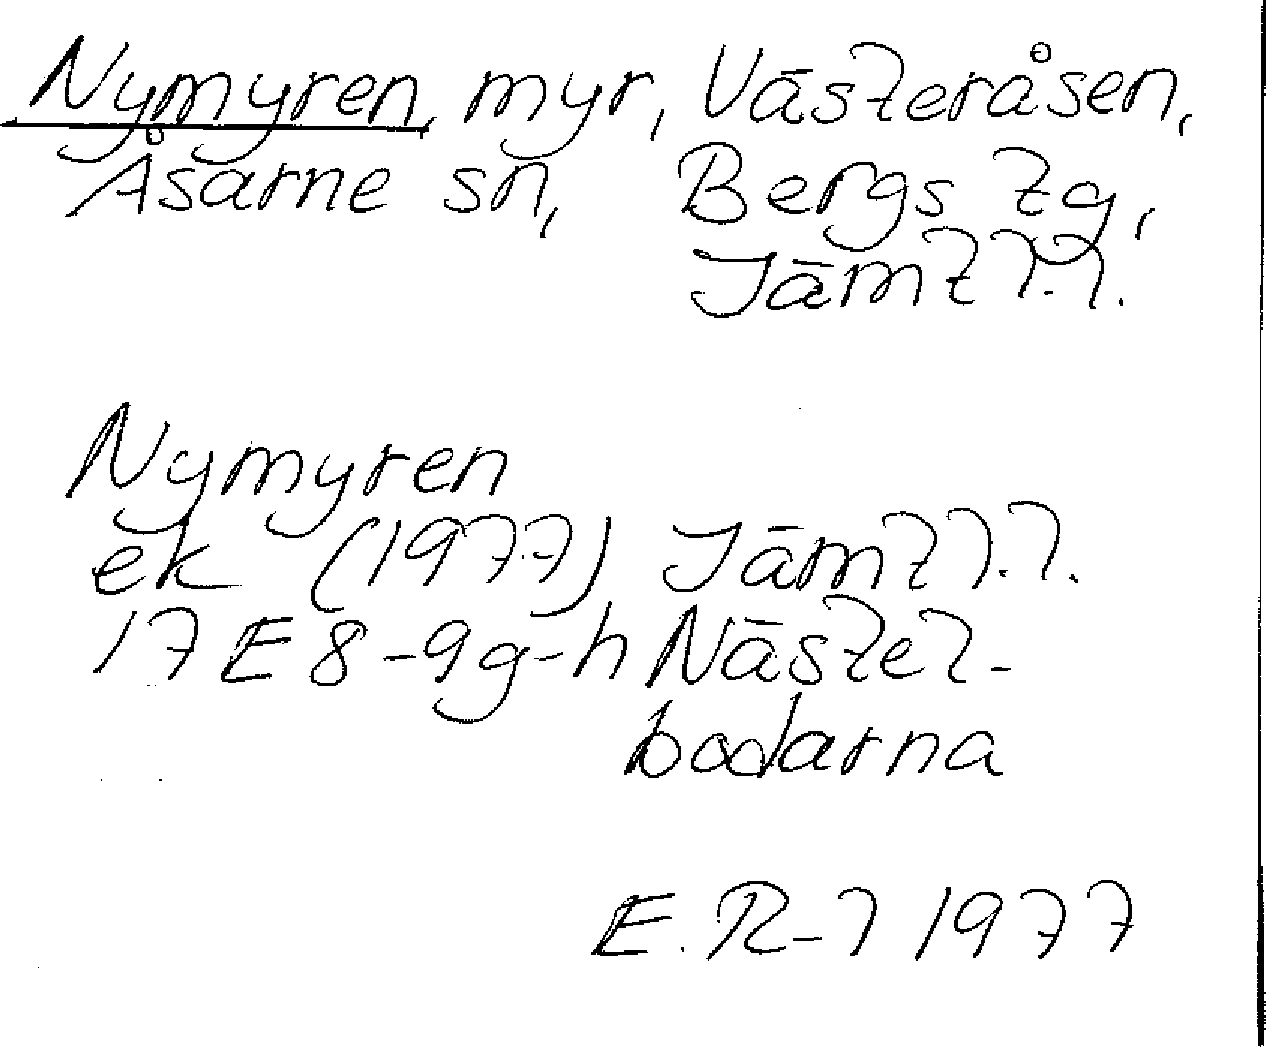 Nymyren, myr, Västeråsen,
Åsarne sn, Bergs tg,
Jämtl.l.
Nymyren
ek (1977) Jämtl.l.
17 E 8-9g-h Nästel-
bodarna
E. R-l 1977